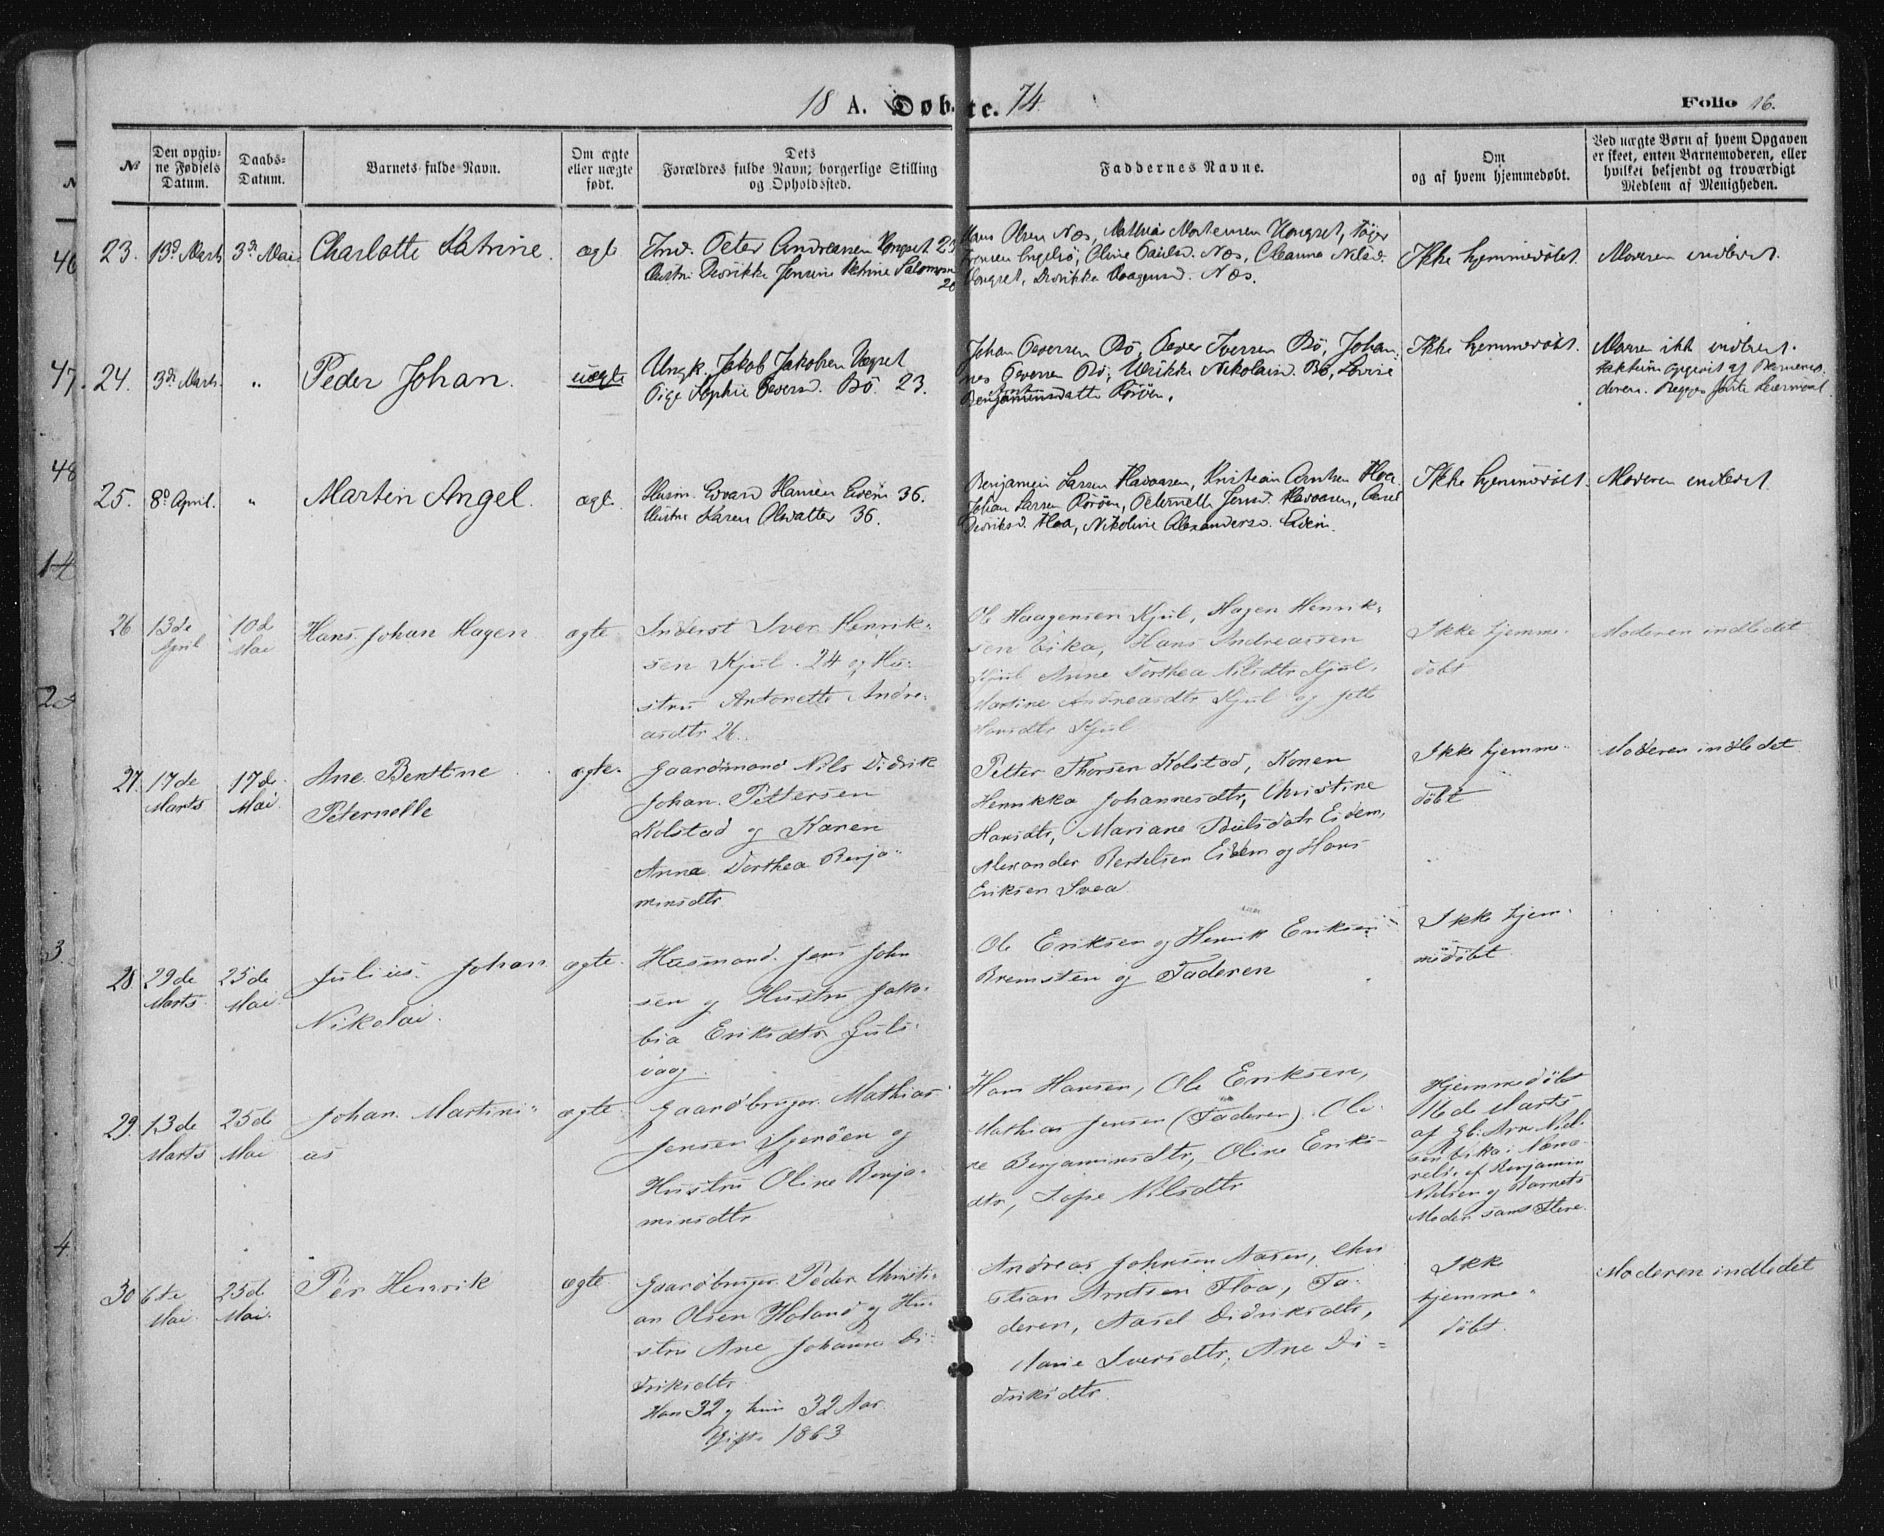 18 A. Døbte. 74.
Folio 16.
№
Den opgiv-
ne Fødsels
Datum.
Daabs-
Datum.
Barnets fulde Navn.
Om ægte
eller uægte
født.
Dets
Forældres fulde Navn, borgerlige Stilling
og Opholdssted.
Faddernes Navne.
Om
og af hvem hjemmedøbt.
Ved uægte Børn af hvem Opgaven
er skeet, enten Barnemoderen, eller
hvilket bekjendt og troværdigt
Medlem af Menigheden.
23.
13d Marts
3di Mai
Charlotte Katrine.
ægte
Ind. Peter Andreasen 23
Hustru Didrikke Jensine Katrine Salomonsd.
Hans Olsen Næs, Mathias Mortensen
Oline Paulsd. Næs, Nilsd.
Didrikke Haagensd. Næs.
Ikke hjemmedøbt.
Moderen indledet.
24.
3di Marts
"
Peder Johan.
uægte
Ungk. Jakob Jakobsen
Pige Sophie Peversd. Bö. 23.
Johan Peversen Bö, Pever Iversen Bö, Johan-
nes Peversen Bö, Ulrikke Nikolaisd. Bö, Lovise
Benjaminsdatter Rörön.
Ikke hjemmedøbt.
Moderen ikke indledet.
opgivet af Barnemo-
deren. Begges förste Leiermaal.
25.
8d April.
"
Martin Angel.
ægte.
Husm. Edvard Hansen Eidem 36.
Hustru Karen Olsdatter 36.
Benjamin Larsen Havaasen, Kristian Arntsen Floa.
Johan Larsen Rörön, Peternelle Jensd. Havaasen,
Didriksd. Floa, Nikoline Alexandersd. Eidem.
Ikke hjemmedøbt.
Moderen indledet
26
13de
April
10d
Mai
Hans Johan Hagen
ægte
Inderst Iver Henrik-
sen Kjul. 24 og Hu-
stru Antonette Andre-
asdtr 26.
Ole Haagensen Kjul, Hagen Henrik-
sen Vika, Hans Andreassen
Kjul Anne Dorthea Nilsdtr Kjul,
Martine Andreasdtr Kjul og Jette
Hansdtr Kjul
Ikke hjemme-
döbt
Moderen indledet
27.
17de
Marts
17de
Mai
Ane Bentine
Peternelle
ægte.
Gaardmand Nils Didrik
Johan Pettersen
Kolstad og Karen
Anna Dorthea Benja-
minsdtr
Petter Thorsen Kolstad, Konen
Henrikka Johannesdtr, Christine
Hansdtr, Mariane Poulsdatr Eidem,
Alexander Bertelsen Eidem og Hans
Eriksen Svea
Ikke hjemme-
döbt
Moderen indledet
28
29de
Marts.
25de
Mai
Julius Johan
Nikolai.
ægte.
Husmand Jens John
sen og Hustru Jako-
bia Eriksdtr Juls-
vaag.
Ole Eriksen og Henrik Eriksen
Bremsten og Faderen
Ikke hjem-
medöbt
29.
13de
Marts
25de
Mai
Johan Martini-
as
ægte.
Gaardbruger Mathias
Jensen Igerøen og
Hustru Oline Benja-
minsdtr
Hans Hansen, Ole Eriksen,
Mathias Jensen (Faderen). Oli-
ne Benjaminsdtr, Oline Eriks-
dtr, Sofie Nilsdtr
Hjemmedöbt
16de Marts
af Gb. Arn Niel-
sen Vika i Nærvæ-
relse af Benjamin
Nilsen og Barnets
Moder samt Flere.
30
6te
Mai
25de
Mai.
Pér Henrik
ægte
Gaardbruger Peder Christi-
an Olsen Holand og Hu-
stru Ane Johanne Di-
driksdtr.
Han 32 og hun 32 Aar.
Gifte 1863
Andreas Johnsen Aasen, Chri
stian Arntsen Floa, Fa-
deren, Aasel Didriksdtr,
Marie Iversdtr, Ane Di-
driksdtr.
Ikke
hjemme-
döbt.
Moderen indledet
46
47.
48
14
2
3.
4.